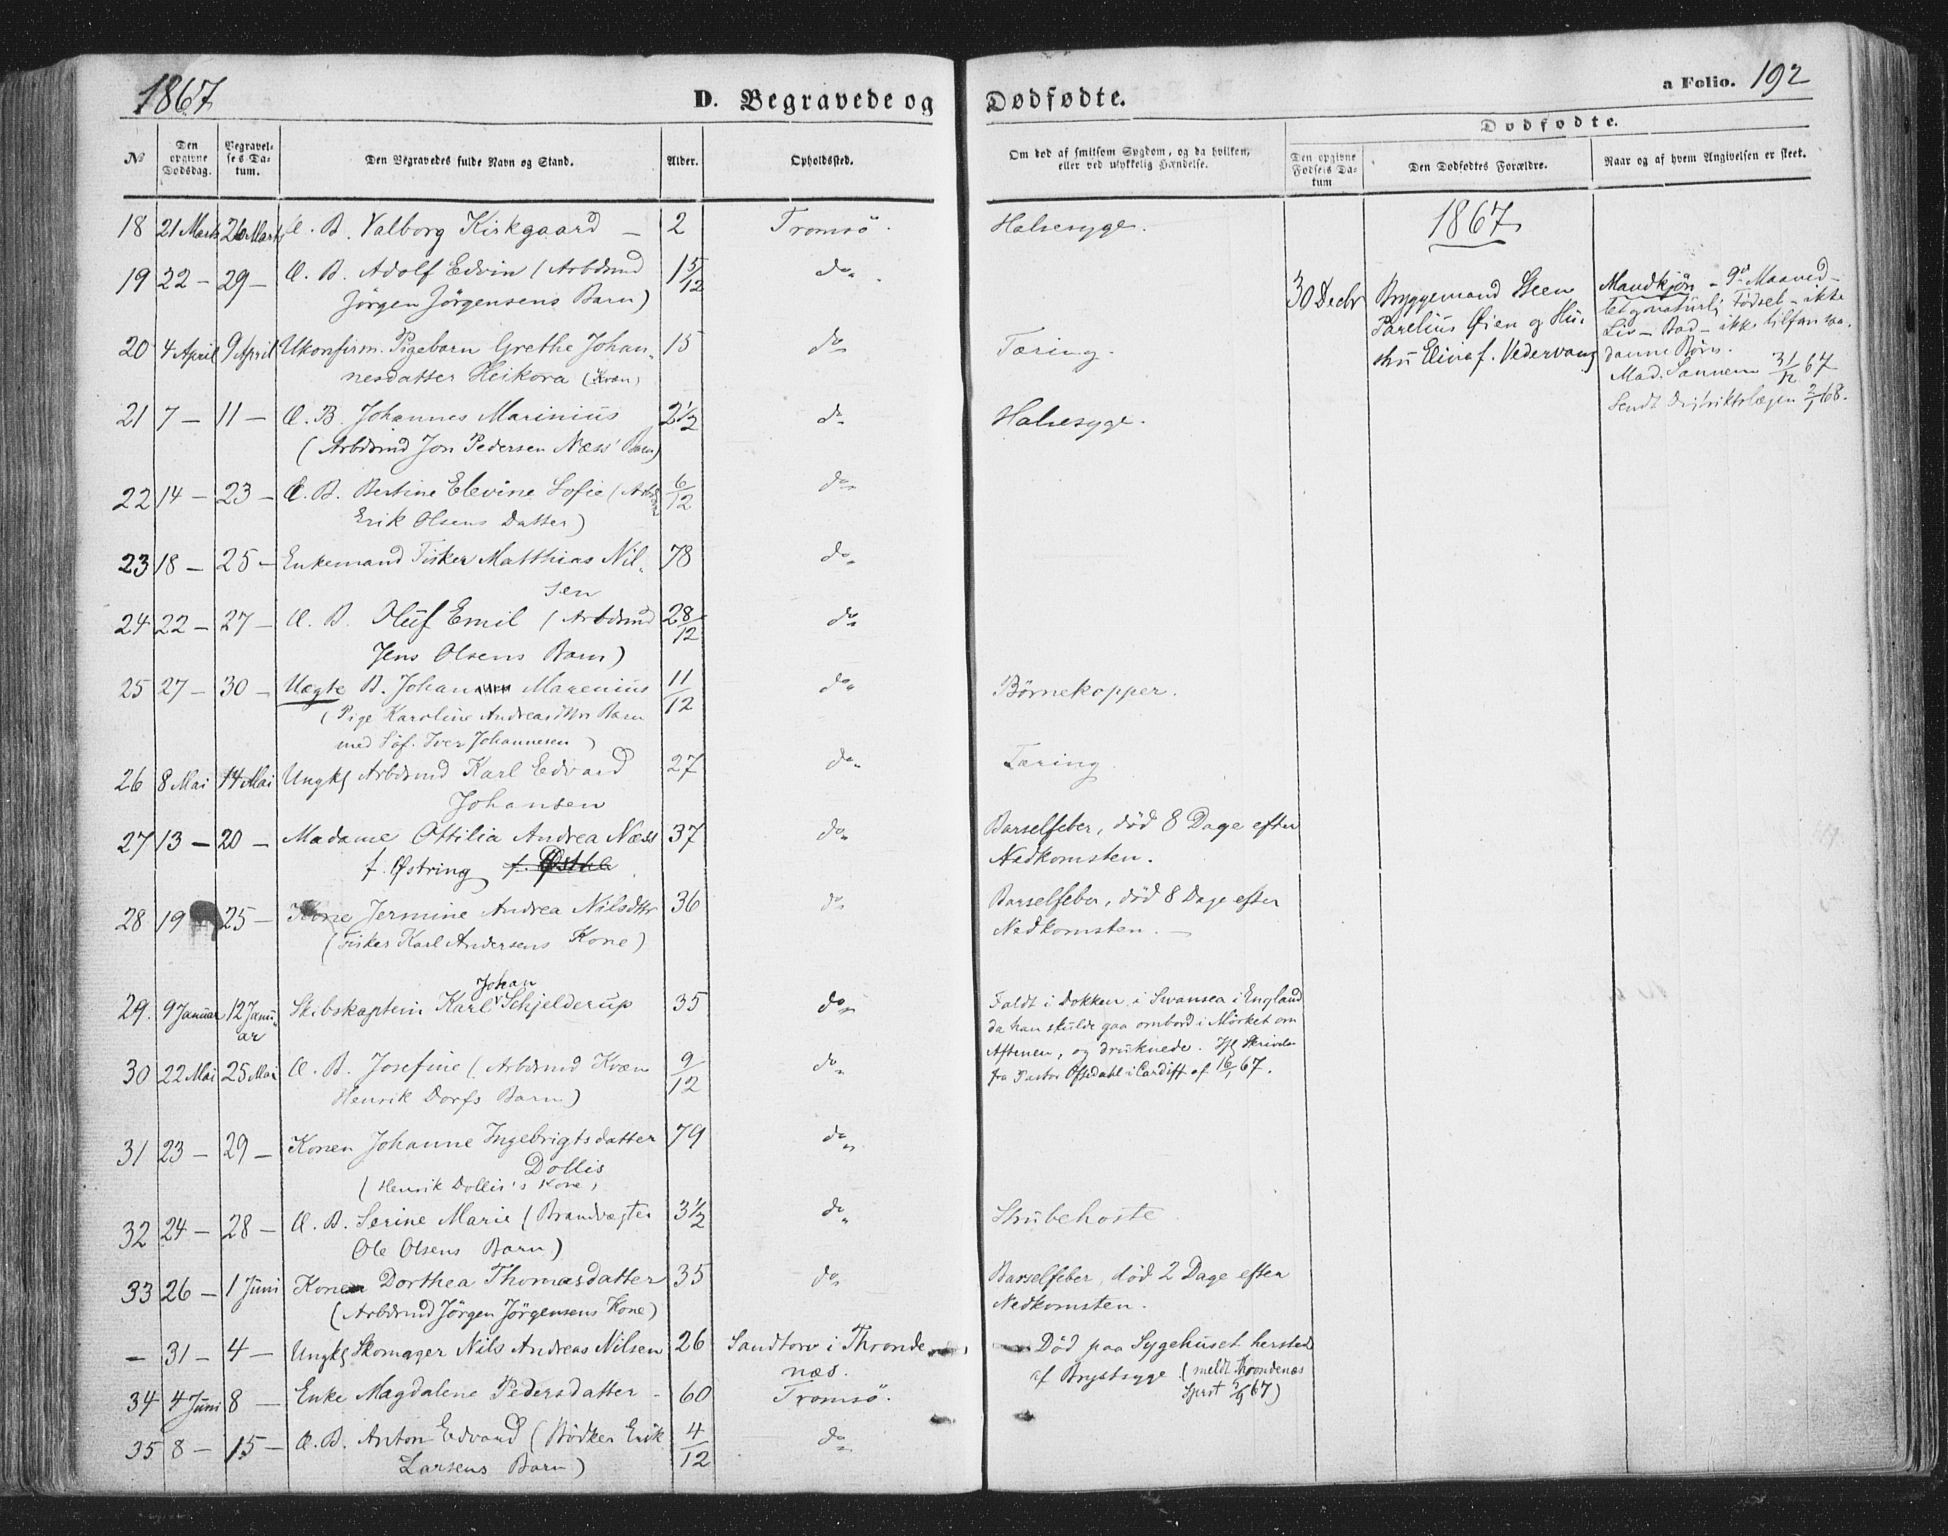 1867
D. Begravede og Dødfødte.
a Folio. 192
No
Den opgivne Dødsdag.
Begravelses Datum.
Den Begravedes fulde Navn og Stand.
Alder.
Opholdssted.
Om død af smitsom Sygdom, og da hvilken,
eller ved ulykkelig Hændelse.
Dødfødte.
Den opgivne Fødsels Datum
Den Dødfødtes Forældre.
Naar og af hvem Angivelsen er skeet.
18 21 Marts 26 Marts Æ. B. Valborg Kirkgaard — 2 Tromsø. Halsesyge.
19 22 — 29 — Æ. B. Adolf Edvin (Arbdsmd 15/12 do
Jørgen Jørgensens Barn)
20 4 April 9 April Ukonfirm. Pigebarn Grethe Johan- 15 do Tæring.
nesdatter Heikora (Kvæn)
21 7 — 11 — Æ. B. Johannes Marinius 2½ do Halsesyge.
(Arbdsmd Jon Pedersen Næss' Barn)
22 14 — 23 — Æ. B. Bertine Elevine Sofie (Arbdsmd 6/12 do
Erik Olsens Datter)
23 18 — 25 — Enkemand Fisker Matthias Nil- 78 do
sen
24 22 — 27 — Æ. B. Oluf Emil (Arbdsmd 28/12 do
Jens Olsens Barn)
25 27 — 30 — Uægte B. Johan Marenius 11/12 do Børnekopper.
(Pige Karoline Andreasdttrs Barn
med Søf. Iver Johannesen)
26 8 Mai 14 Mai Ungkl Arbdsmd Karl Edvard 27 do Tæring
Johansen
27 13 — 20 — Madame Ottilia Andrea Næss 37 do Barselfeber, død 8 Dage efter
f. Østring Nedkomsten.
28 19 25 — Kone Jermine Andrea Nilsdttr 36 do Barselfeber, død 8 Dage efter
(Fisker Karl Andersens Kone) Nedkomsten. —
Johan
29. 9 Januar 12 Janu- Skibskaptein Karl Schjelderup 35 do Faldt i Dokken i Swansea i England
ar da han skulde gaa ombord i Mørket om
Aftenen, og druknede. Ifl Skrivelse
fra Pastor Oftedahl i Cardiff af 16/1 67.
30 22 Mai 25 Mai Æ. B. Josefine (Arbdsmd Kvæn 9/12 do
Henrik Dorfs Barn)
31 23 — 29 — Konen Johanne Ingebrigtsdatter 79 do
Dollis
(Henrik Dollis's Kone)
32 24 — 28 — Æ. B. Serine Marie (Brandvægter 3½ do Strubehoste
Ole Olsens Barn)
33 26 — 1 Juni Kone Dorthea Thomasdatter 35 do Barselfeber, død 2 Dage efter
(Arbdsmd Jørgen Jørgensens Kone) Nedkomsten.
— 31 — 4 — Ungkl Skomager Nils Andreas Nilsen 26 Sandtorv i Thronde- Død paa Sygehuset hersteds
næs. af Brystsyge (meldt Throndenæs
34 4 Juni 8 — Enke Magdalene Pedersdatter — 60 Tromsø.
35 8 — 15 — Æ. B. Anton Edvard (Bødker Erik 4/12 do
Larsens Barn)
1867
30 Decbr Bryggemand Steen
Parelius Øien og Hu-
stru Elina f. Vedervang
Mandkjøn — 9de Maaned —
Fødsel — ikke
Liv — Bad — ikke tilfun va-
danne Børn.
Mad. Sannem 31/12 67
Sendt Distriktslægen 2/1 68.